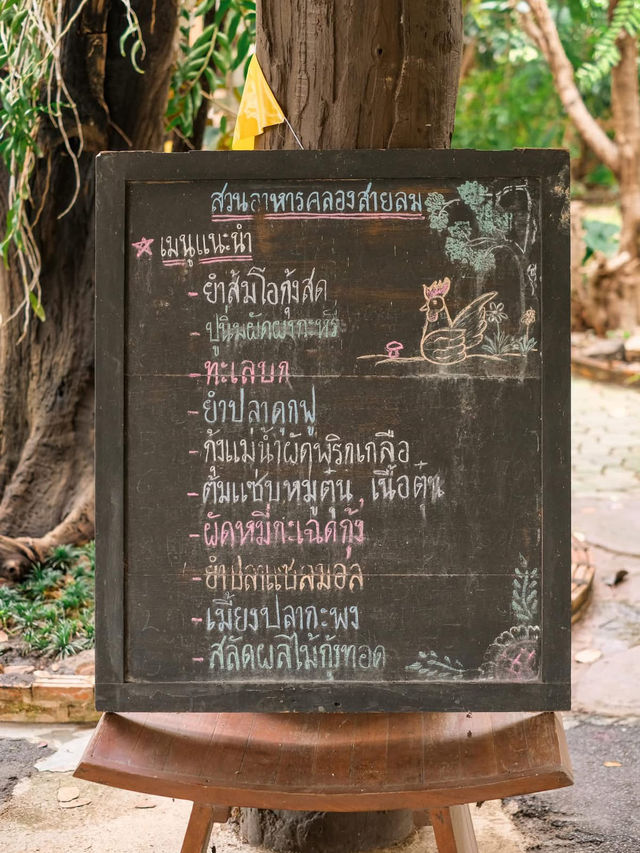 สวนอาหารคลองสายลม
เมนูแนะนำ
- ยำส้มโอกุ้งสด
- ปูนิ่มผัดผงกะหรี่
- ทะเลบก
- ยำปลาดุกฟู
- กุ้งแม่น้ำผัดพริกเกลือ
- ต้มแซ่บหมูตุ๋น, เนื้อตุ๋น
- ผัดหมี่กะเฉดกุ้ง
- ยำปลาแซลมอล
- เมี่ยงปลากะพง
- สลัดผลไม้กุ้งทอด